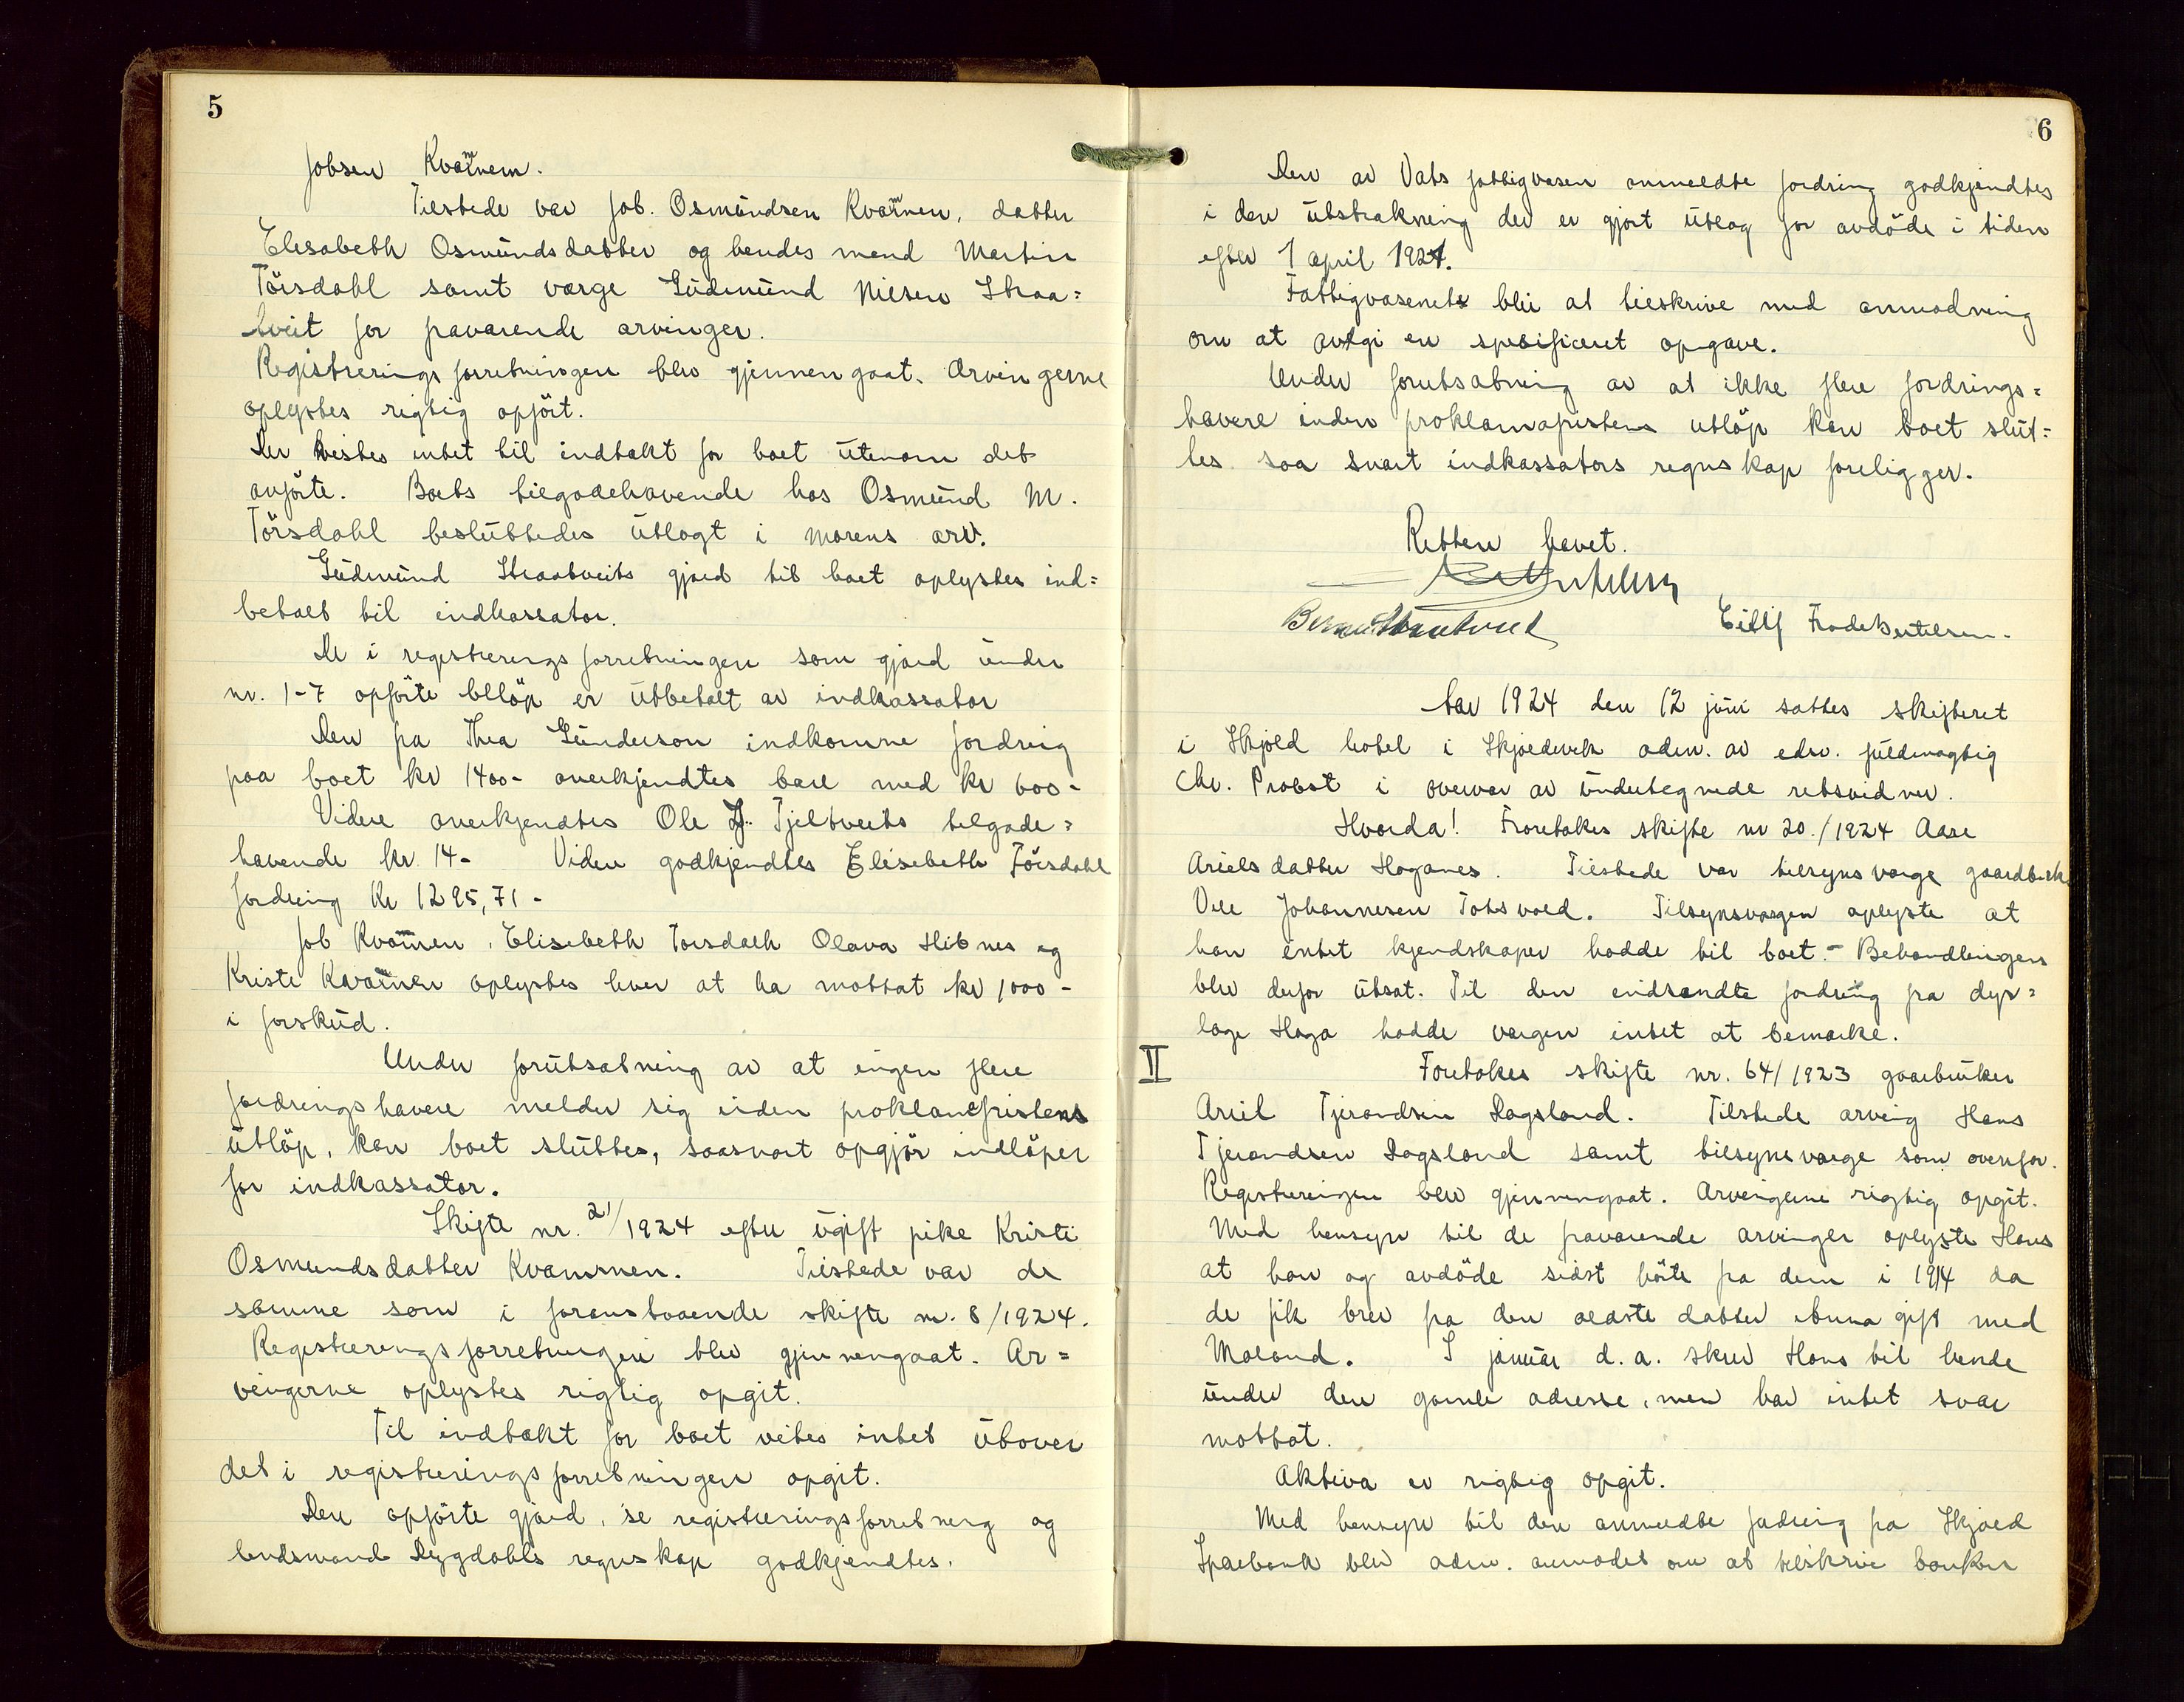 5
Jobsen Kvammen.
Tilstede var Job. Osmundsen Kvammen, datter
Elesabeth Osmundsdatter og hendes mand Martin
Törsdahl samt verge Gudmund Nilsen Straa=
tveit for fraværende arvinger.
Registreringsforretningen blev gjennengaat. Arvingerne
oplystes rigtig opfört.
Der vistes intet til indtækt for boet utenom det
anförte. Boets tilgodehavende hos Osmund M.
Törsdahl besluttedes utlagt i morens arv.
Gudmund Straatveits gjæld til boet oplystes ind=
betalt til indkassator.
De i registreringsforretningen som gjæld under
nr. 1-7 opförte bellöp er utbetalt av indkassator
Den fra Thea Gunderson indkomne fordring
paa boet kr 1400- anerkjendtes bare med kr 600-
Videre anerkjendtes Ole J. Tjeltveits tilgode=
havende kr. 14- Viden godkjendtes Elisebeth Törsdahl
fordring kr 1295,71-
Job Kvammen, Elisebeth Torsdalh Olava Hibnes og
Kristi Kvammen oplystes hver at ha mottat kr 1000-
i forskud.
Under forutsatning av at ingen flere
fordringshavere melder sig inden proklamefristens
utlöp, kan boet sluttes, saasnart opgjör indlöper
for indkassator.
Skifte nr. 21/1924 efter ugift pike Kristi
Osmundsdatter Kvammen. Tilstede var de
samme som i foranstaaende skifte nr. 8/1924.
Registreringsforretningen blev gjennengaat. Ar=
vingerne oplystes rigtig opgit.
Til indtækt for boet vites intet utover
det i registreringsforretningen opgit.
Den opförte gjæld, se registreringsforretning og
lendsmand Dygdahls regnskap godkjendtes.
6
Den av Vats fattigvæsen anmeldte fordring godkjendtes
i den utstrakning der er gjort utlæg for avdöde i tiden
efter 1 april 1921.
Fattigvæsenet blir at tilskrive med anmodning
om at avgi en spesificeret opgave.
Under forutsatning av at ikke flere fordrings=
havere inden proklamafristens utlöp kan boet slut=
tes saa snart indkassators regnskap foreligger.
Retten hævet.
Eilif Frode Bertelsen.
Aar 1924 den 12 juni sattes skifteret
i Skjold hotel i Skjoldevik adm. av edsv. fuldmægtig
Chr. Probst i overvær av undertegnede retsvidner.
Hvorda! Foretokes skifte nr 20./1924 Aase
Arielsdatter Haganes. Tilstede var tilsyns værge gaardbruk
Ole Johannesen Totsvold. Tilsynsvargen oplyste at
han intet kjendskaper hadde til boet.- Behandlingen
blev derfor utsat. Til den indsendte fordring fra dyr=
læge Haga hadde vergen intet at bemærke.
II
Foretokes skifte nr. 64/1923 gaarbruker
Ariil Tjerandsen Dagsland. Tilstede arving Hans
Tjerandsen Dagsland samt tilsynsværge som ovenfor.
Registreringen blev gjennengaat. Arvingerne rigtig opgit.
Med hensyn til de fraværende arvinger oplyste Hans
at han og avdöde sidst hörte fra dem i 1914 da
de fik brev fra den ældste datter Anna gift med
Moland. I januar d.a. skrev Hans til hende
under den gamle adresse, men har intet svar
mottat.
Aktiva er rigtig opgit.
Med hensyn til den anmeldte fordring fra Skjold
Sparebank blev adm. anmodet om at tilskrive banken